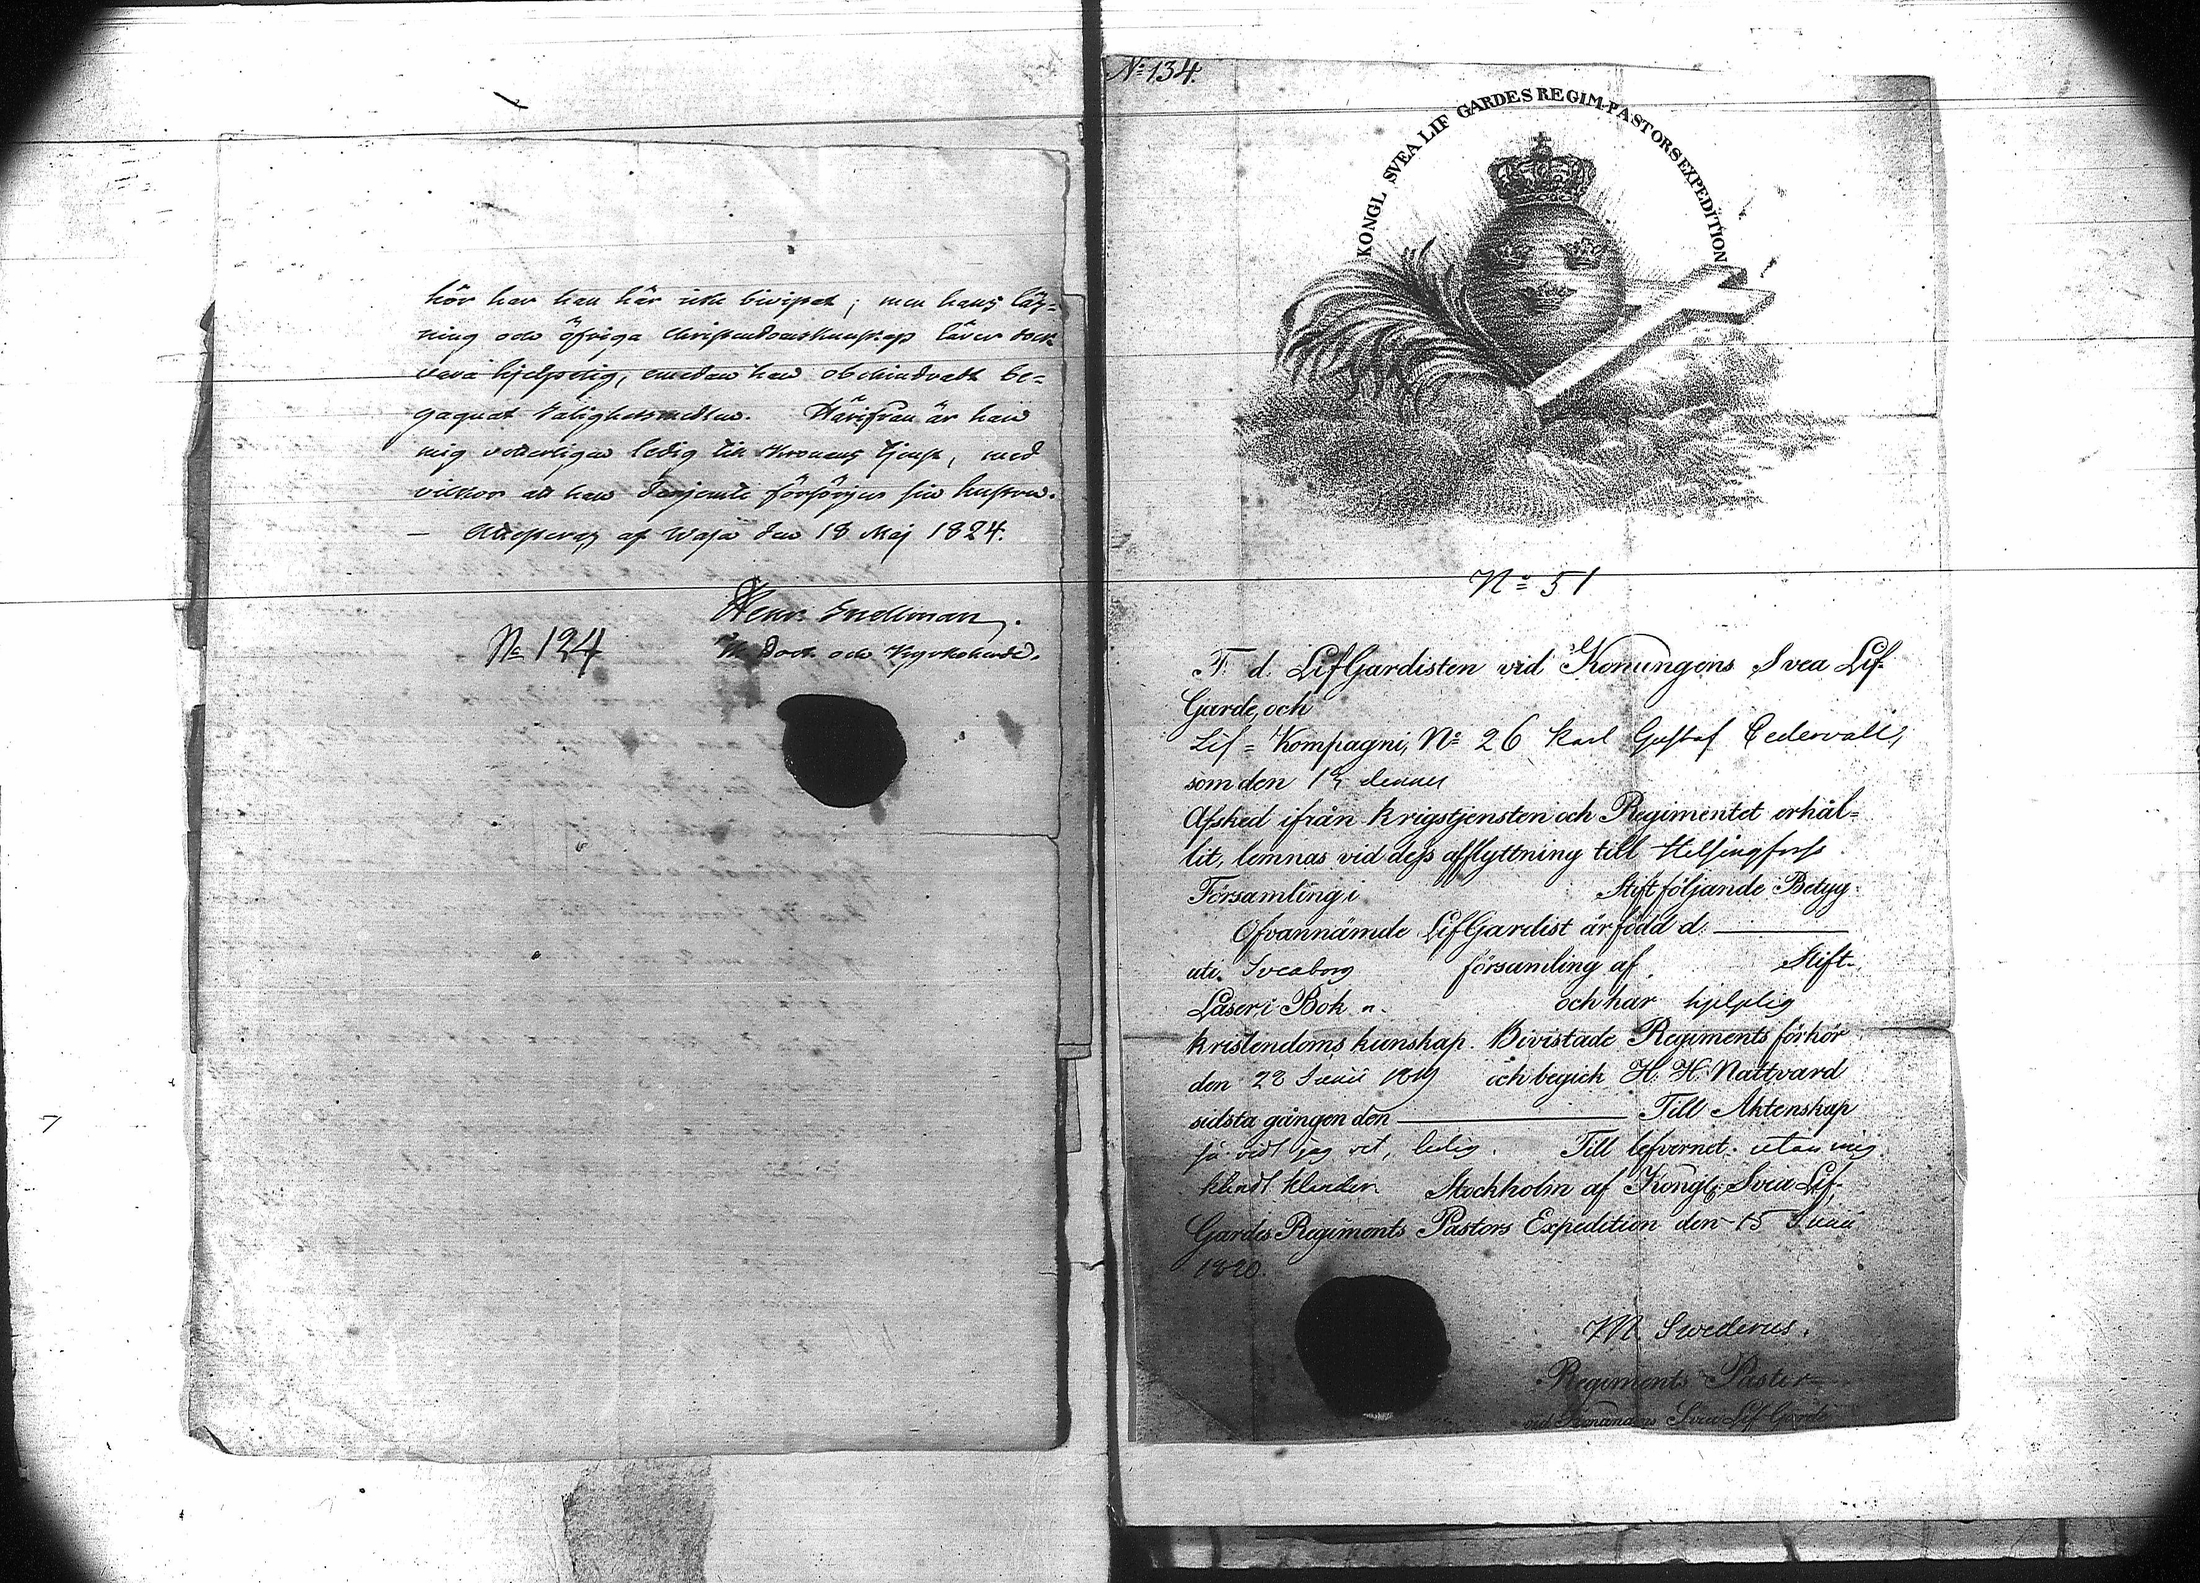 hör har han här icke bivistat; men hans läs-
ning och öfriga christendomskunskap lärer dock
vara hjelpelig, emedan han obehindradt be-
gagnat salighetsmedlen. Härifrån är han
mig veterligen ledig till Kronans tjenst, med
vilkor att han derjemte försörjer sin hustru.
— af Wasa den 18 Maj 1824.
Henr. Snellman.
Doct. och Kyrkoherde.
No 124
No 134.
KONGL SVEA LIF GARDES REGIM-PASTORSEXPEDITION
No 51
F. d. LifGardisten vid Konungens Svea Lif-
Garde, och
Lif = Kompagni, No 26 Karl Gustaf Cedervall,
som den dennes
Afsked ifrån Krigstjensten och Regimentet erhål=
lit, lemnas vid dess afflyttning till Helsingfors
Församling i Stift följande Betyg:
Ofvannämde LifGardist är född d. ———
uti Sveaborg församling af Stift.
Läser i Bok n. och har hjelplig
kristendoms kunskap. Bivistade Regiments förhör
den 22 Junii 1819 och begick H. H. Nattvard
sidsta gången den ——— Till Äktenskap
så vidt jag vet, ledig. Till lefvernet utan mig
kändt klander. Stockholm af Kongl. Svea Lif-
Gardes Regiments Pastors Expedition den 15 Junii
1820.
M. Swederus.
Regiments Pastor
vid Konungens Svea Lif-Garde